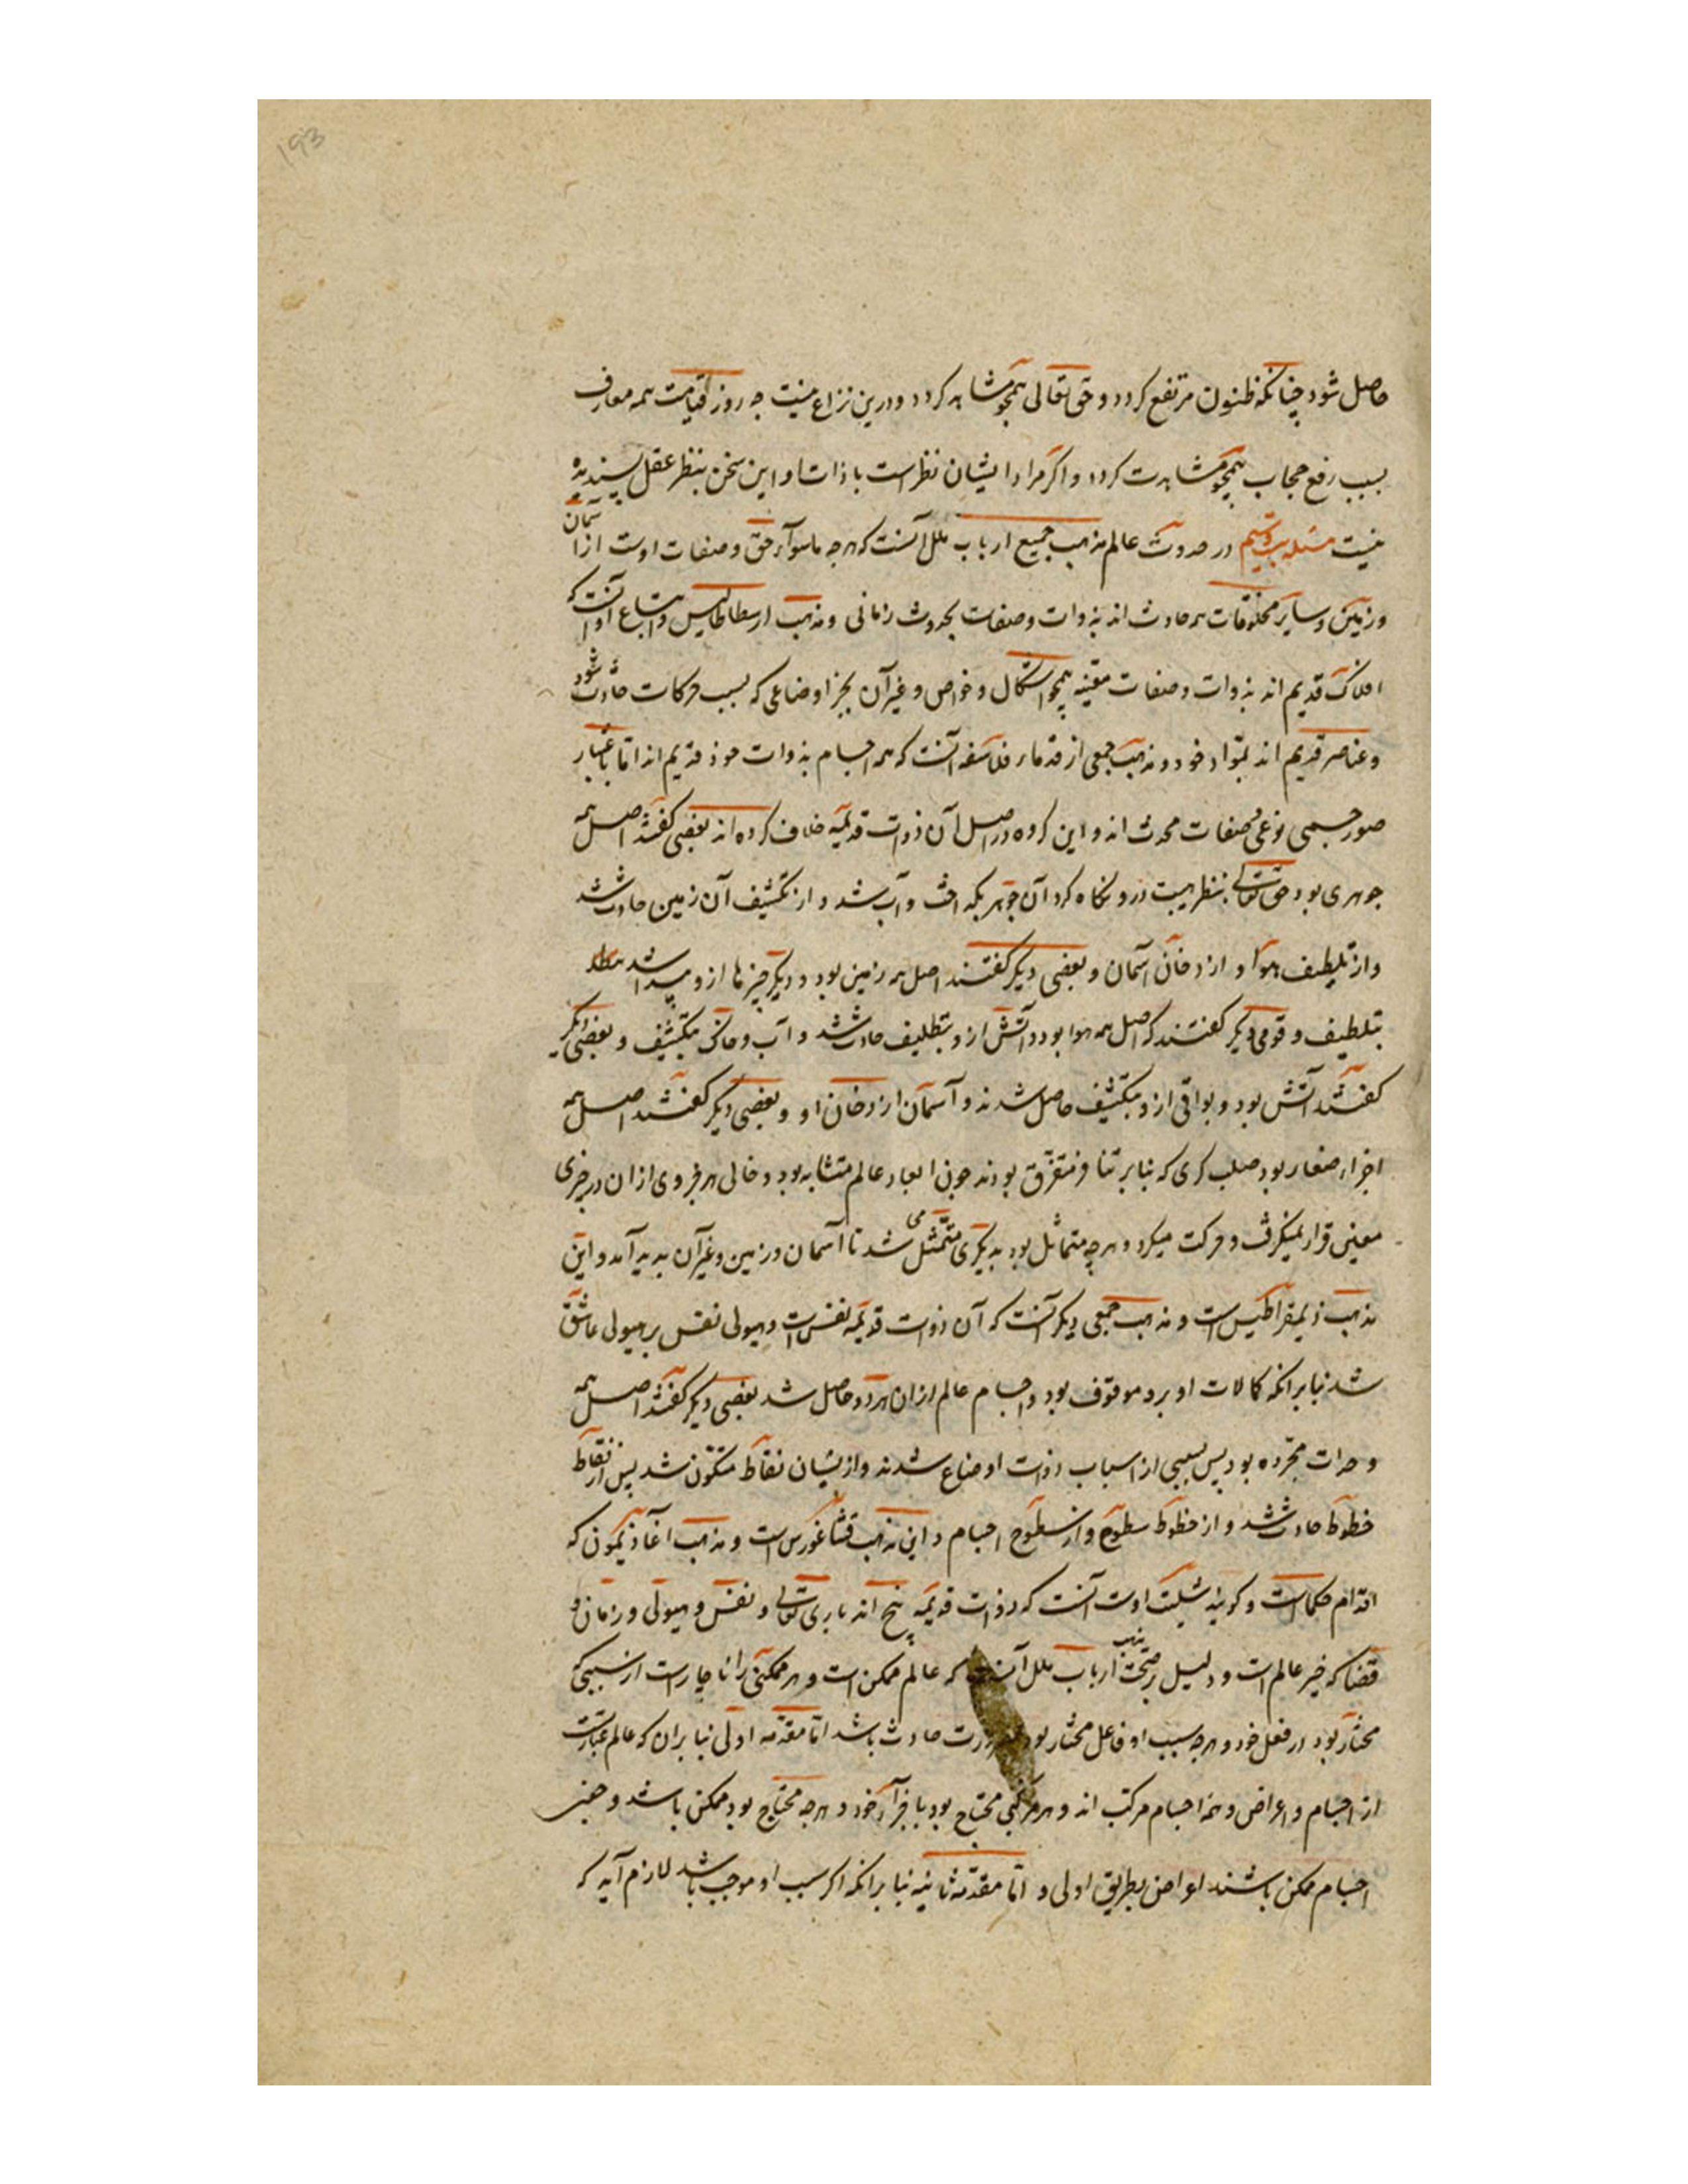 193
حاصل شود چنانکه ظنون مرتفع کردد و حق تعالی همچو مشاهد کردد و درین نزاع نیست چه روز قیامت همه معارف
بسبب رفع حجاب همچو مشاهدت کردد و اکر مراد ایشان نظرست با ذات او این سخن بنظر عقل پسندیده
نیست مسئله بیستم در حدوث عالم مذهب جمیع ارباب ملل آنست که هرچه ماسوآء حق و صفات اوست از آسمان
و زمین و سایر مخلوقات همه حادث اند بذوات و صفات بحدوث زمانی و مذهب ارسطاطالیس و اتباع او آنست که
افلاک قدیم اند بذوات و صفات معینه همچو اشکال و خواص و غیر آن بجز اوضاعی که بسبب حرکات حادث شود
و عناصر قدیم اند بمواد خود و مذهب جمعی از قدماء فلاسفه آنست که همه اجسام بذوات خود قدیم اند اما باعتبار
صور جسمی و نوعی و صفات محدث اند و این کروه در اصل آن ذوات قدیمه خلاف کرده اند بعضی کفتند اصل همه
جوهری بود حق تعالی بنظر هیبت درو نکاه کرد آن جوهر بکداخت و آب شد و از تکثیف آن زمین حادث شد
و از تلطیف هوا و از دخان آسمان و بعضی دیکر کفتند اصل همه زمین بود و دیکر چیزها ازو پیدا شد
بتلطیف و قومی دیکر کفتند که اصل همه هوا بود و آتش ازو بتلطیف حادث شد و آب و خاک بتکثیف و بعضی دیکر
کفتند آتش بود و بواقی ازو بتکثیف حاصل شدند و آسمان از دخان او و بعضی دیکر کفتند اصل همه
اجزاء صغار بود صلب کری که بنابر تنافر متفرق بودند چون ابعاد عالم متشابه بود و خالی هر فردی ازان در جزی
معین قرار نمیکرفت و حرکت میکرد و هرچه متماثل بود بدیکری متمثل می شد تا آسمان و زمین و غیر آن بدید آمد و این
مذهب ذیمقراطیس است و مذهب جمعی دیکر آنست که آن ذوات قدیمه نفس است و هیولی نفس بر هیولی عاشق
شد بنابر آنکه کمالات او برو موقوف بود و اجسام عالم ازان هر دو حاصل شد بعضی دیکر کفتند اصل همه
وحدات مجرده بود پس بسببی از اسباب ذوات اوضاع شدند و از یشان نقاط متکون شد پس از نقاط
خطوط حادث شد و از خطوط سطوح و از سطوح اجسام و این مذهب فیثاغورس است و مذهب اغاذیمون که
اقدام حکماست و کویند شیث اوست آنست که ذوات قدیمه پنج اند باری تعالی و نفس و هیولی و زمان و
فضا که خیر عالم است و دلیل بر صحت مذهب ارباب ملل آنست که عالم ممکن است و هر ممکنی را ناچارست از سببی که
مختار بود در فعل خود و هرچه سبب او فاعل مختار بود حادث باشد اما مقدمه اولی بنابران که عالم عبارتست
از اجسام و اعراض و همه اجسام مرکب اند و هر مرکبی محتاج بود باجزآء خود و هرچه محتاج بود ممکن باشد و چون
اجسام ممکن باشند اعراض بطریق اولی و اما مقدمه ثانیه بنابر آنکه اکر سبب او موجب باشد لازم آید که